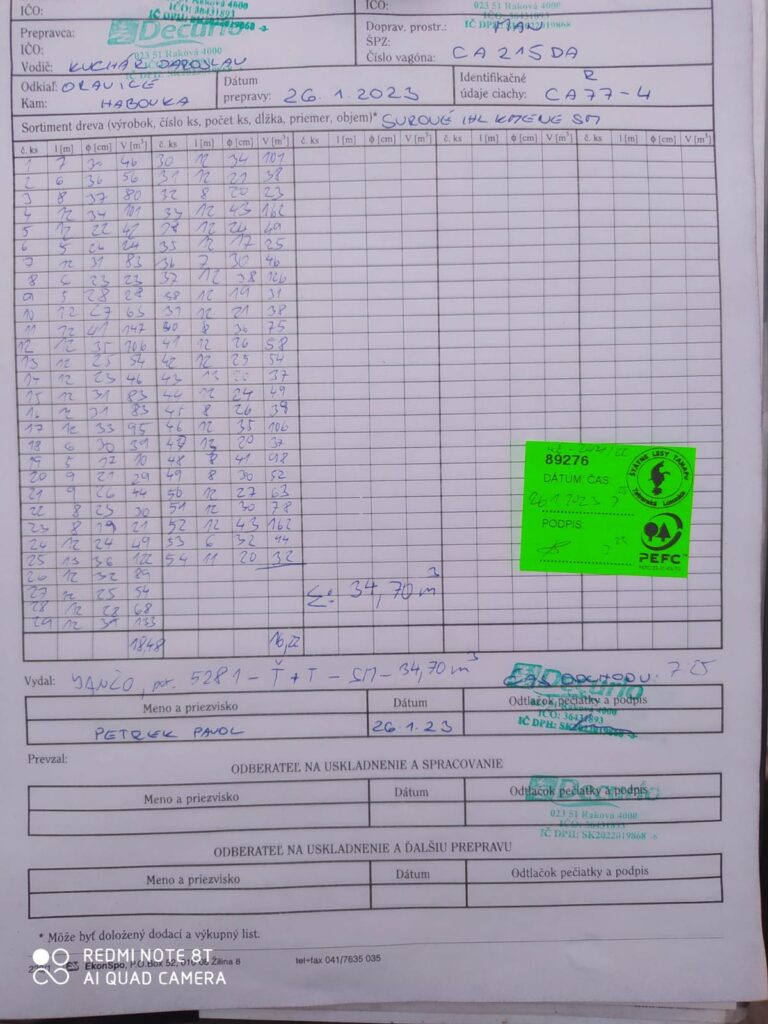 IČO:
IČO: 36431893
IČ DPH: SK2022019868
Doprav. prostr.: MAN
ŠPZ:
Prepravca:
Decurio
023 51 Raková 4000
IČO:
Vodič: KUCHÁR
Číslo vagóna: CA 215 DA
Odkiaľ: ORAVICE
Kam: HABOVKA
Dátum
prepravy: 26.1.2023
Identifikačné R
údaje ciachy: CA77-4
Sortiment dreva (výrobok, číslo ks, počet ks, dĺžka, priemer, objem)* SUROVÉ IHL KMENE SM
č. ks l [m] ϕ [cm] V [m³] č. ks l [m] ϕ [cm] V [m³] č. ks l [m] ϕ [cm] V [m³] č. ks l [m] ϕ [cm] V [m³] č. ks l [m] ϕ [cm] V [m³]
1 7 30 46 30 12 34 101
2 6 36 56 31 12 21 38
3 8 37 80 32 8 20 23
4 12 34 101 33 12 43 162
5 12 22 42 34 12 24 49
6 5 26 24 35 12 17 25
7 12 31 83 36 7 30 46
8 6 23 23 37 12 38 126
9 5 28 28 38 12 19 31
10 12 27 63 39 12 21 38
11 12 41 147 40 8 36 75
12 12 35 106 41 12 26 58
13 12 25 54 42 12 25 54
14 12 23 46 43 13 20 37
15 12 31 83 44 12 24 49
16 12 31 83 45 8 26 39
17 12 33 95 46 12 35 106
18 6 30 39 47 13 20 37
19 5 17 10 48 8 41 98
20 9 21 29 49 8 30 52
21 9 26 44 50 12 27 63
22 8 23 30 51 12 30 78
23 8 21 52 12 43 162
24 12 24 49 53 6 32 44
25 13 36 122 54 11 20 32
26 12 32 89
27 12 25 54
28 12 28 68
29 12 39 133
Σ: 34,70 m³
18,48 16,22
89276
DÁTUM, ČAS
26.1.2023
PODPIS
ŠTÁTNE LESY TANAPU
Tatranská Lomnica
PEFC
Vydal: JANČO, 5281 - Ť + T - SM - 34,70 m³
ČAS ODCHODU: 7 25
Decurio
023 51 Raková 4000
IČO: 36431893
IČ DPH: SK2022019868
Meno a priezvisko Dátum Odtlačok pečiatky a podpis
PETREK PAVOL 26.1.23
Prevzal:
ODBERATEĽ NA USKLADNENIE A SPRACOVANIE
Meno a priezvisko Dátum Odtlačok pečiatky a podpis
Decurio
023 51 Raková 4000
IČO: 36431893
IČ DPH: SK2022019868 -6
ODBERATEĽ NA USKLADNENIE A ĎALŠIU PREPRAVU
Meno a priezvisko Dátum Odtlačok pečiatky a podpis
* Môže byť doložený dodací a výkupný list.
EkonSpo, P.O.Box 52, 010 08 Žilina 8 tel+fax 041/7635 035
REDMI NOTE 8T
AI QUAD CAMERA